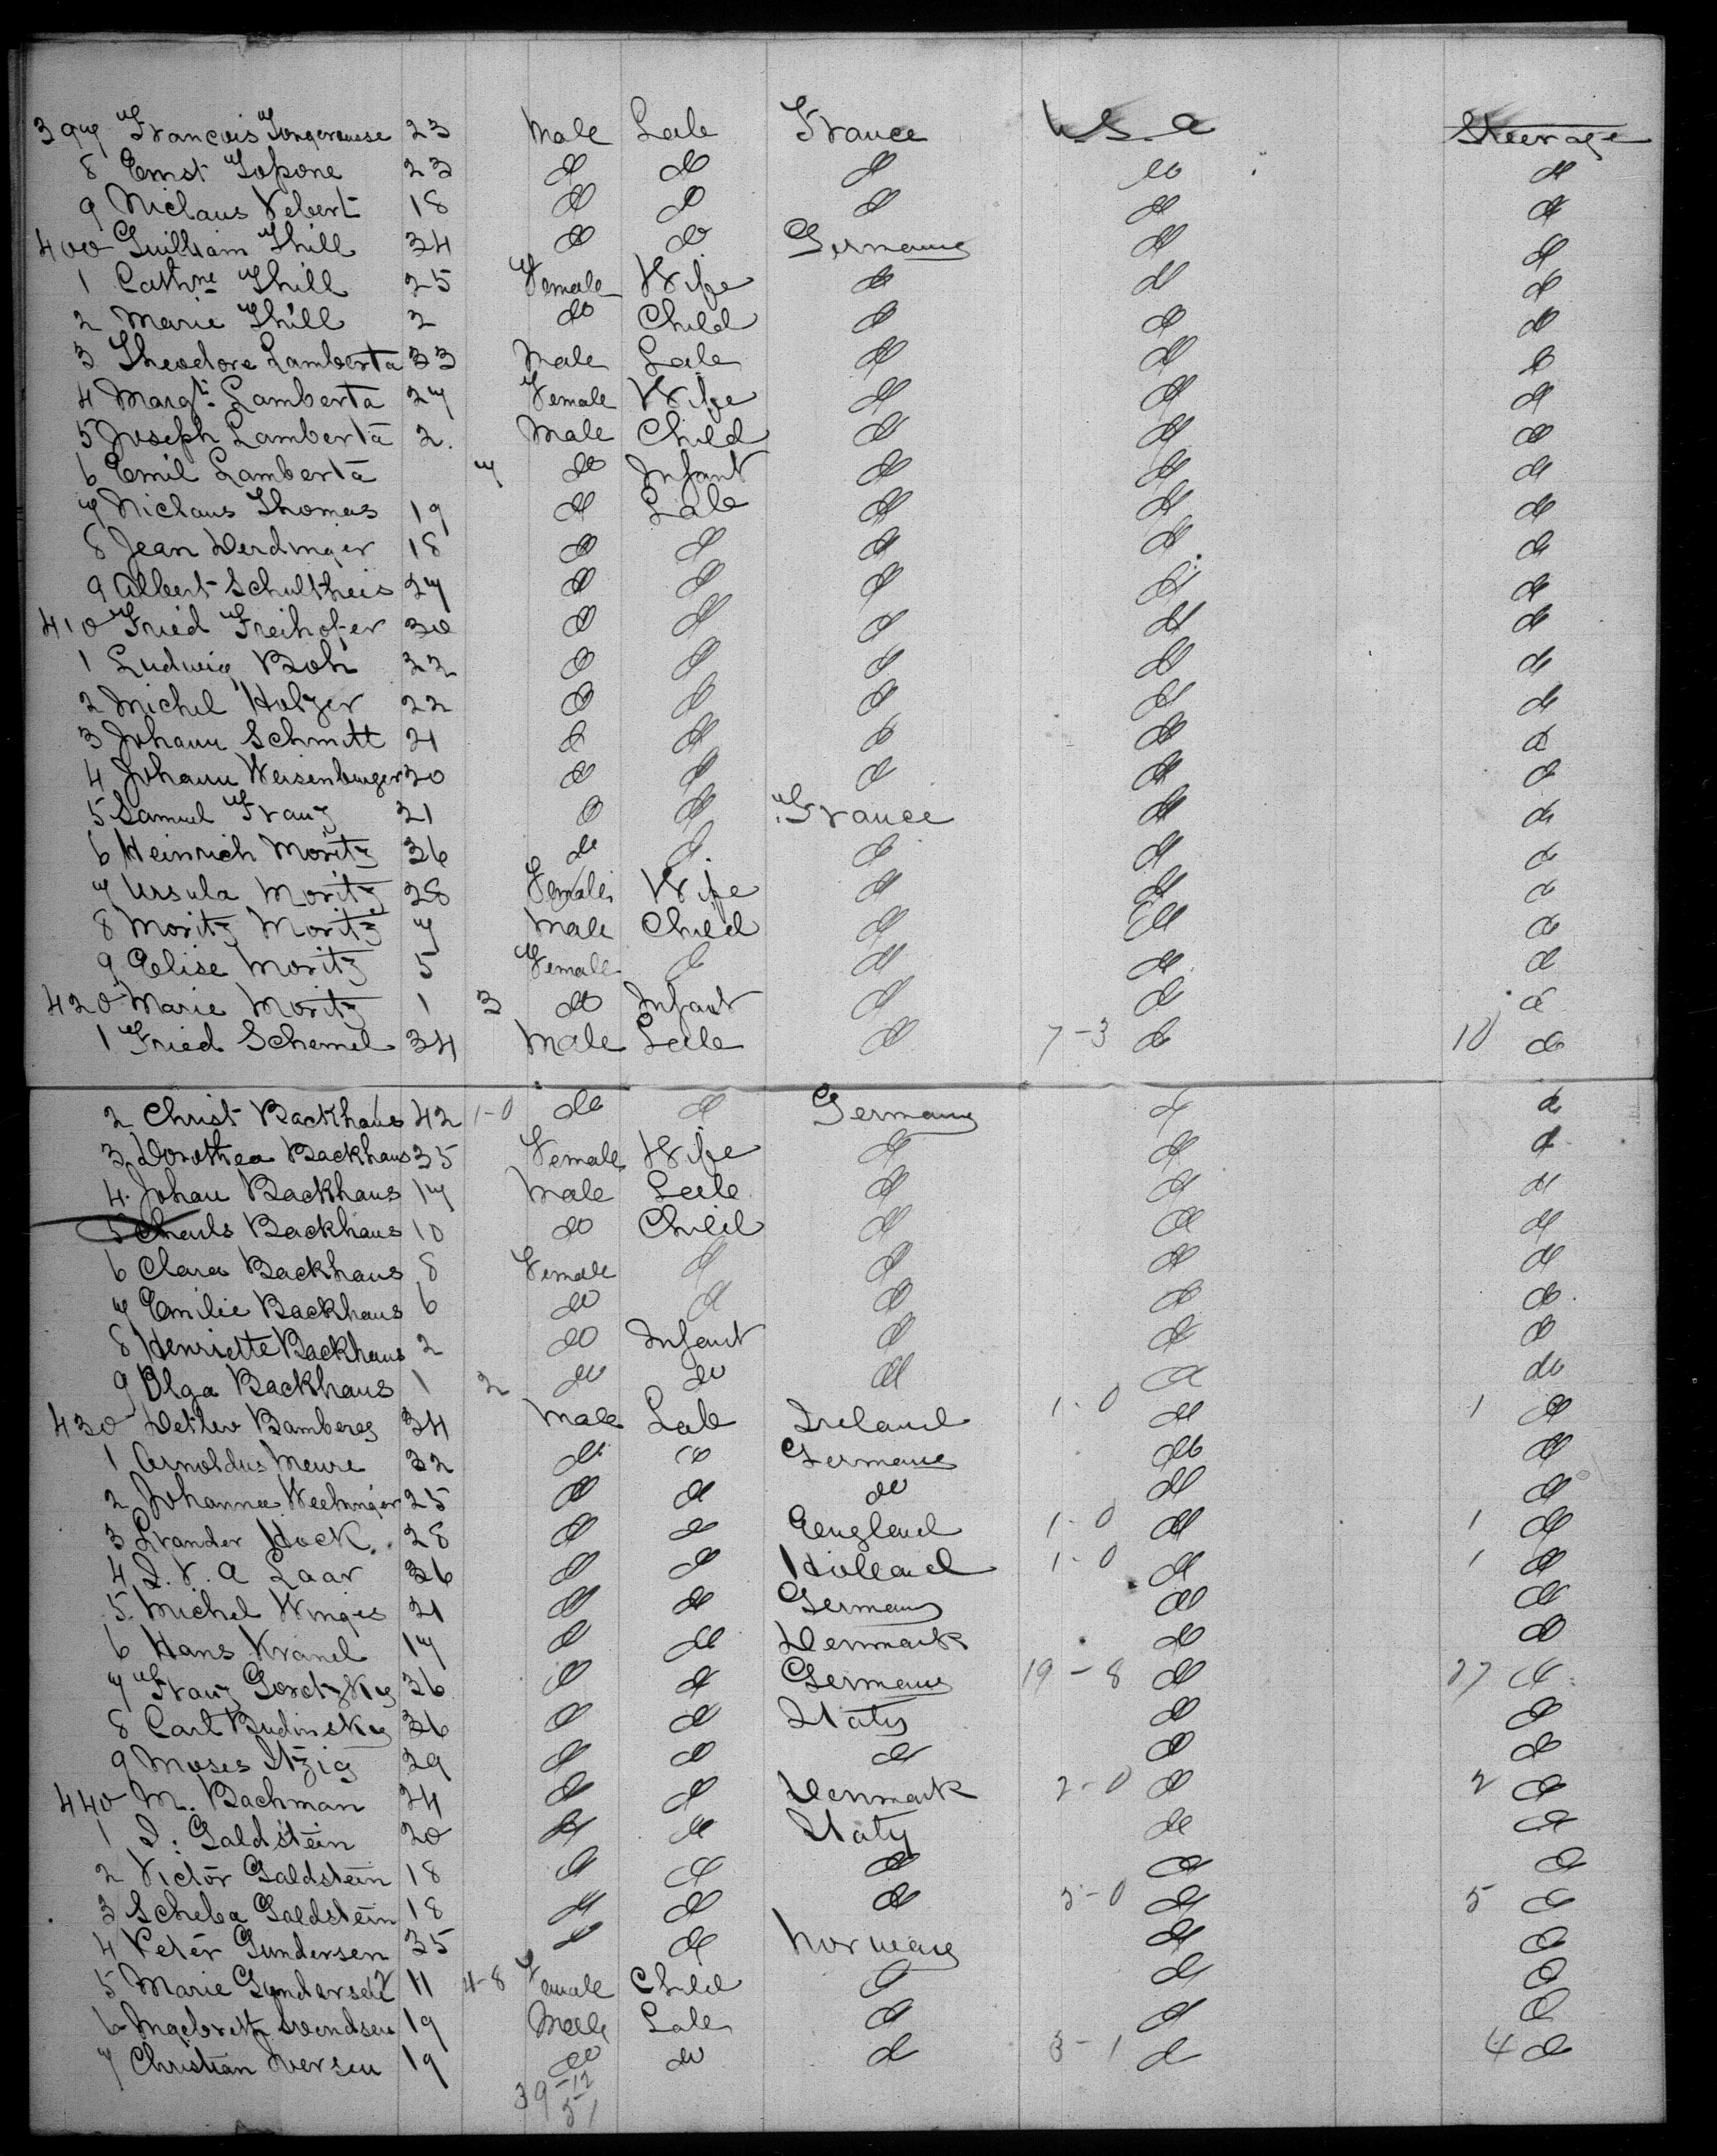 397 Francois 23 Male Lab France U S a Steerage
8 Ernst Topone 23 do do do do do
9 Niclaus Vebert 18 do do do do do
400 Guilliam Thill 34 do do Germany do do
1 Cathne Thill 25 Female Wife do do do
2 Marie Thill 2 do Child do do do
3 Theodore Lamberta 33 Male Lab do do do
4 Margt Lamberta 27 Female Wife do do do
5 Joseph Lamberta 2 Male Child do do do
6 Emil Lamberta 7 do Infant do do do
7 Niclaus Thomas 19 do Lab do do do
8 Jean Derdinger 18 do do do do do
9 Albert Schultheis 27 do do do do do
410 Fried Freihofer 30 do do do do do
1 Ludwig Boh 22 do do do do do
2 Michel Holzer 22 do do do do do
3 Johann Schmitt 21 do do do do do
4 Johann Weisenburger 30 do do do do do
5 Samuel Franz 21 do do France do do
6 Heinrich Moritz 36 do do do do do
7 Ursula Moritz 28 Female Wife do do do
8 Moritz Moritz 7 Male Child do do do
9 Elise Moritz 5 Female do do do do
420 Marie Moritz 1 3 do Infant do do do
1 Fried Schemel 34 Male Lab do 7-3 do 10 do
2 Christ Backhaus 42 1-0 do do Germany do do
3 Dorothea Backhaus 35 Female Wife do do do
4 Johan Backhaus 17 Male Lab do do do
5 Charls Backhaus 10 do Child do do do
6 Clara Backhaus 8 Female do do do do
7 Emilie Backhaus 6 do do do do do
8 Henriette Backhaus 2 do Infant do do do
9 Olga Backhaus 1 2 do do do do do
430 Detlev Bamberg 34 Male Lab Ireland 1-0 do 1 do
1 Arnoldus Meure 32 do do Germany do do
2 Johannes 25 do do do do do
3 Hock 28 do do England 1-0 do 1 do
4 V. A Laar 36 do do Holland 1-0 do 1 do
5 Michel Winges 21 do do Germany do do
6 Hans Kranel 17 do do Denmark do do
7 Franz 36 do do Germany 19-8 do 27 do
8 Carl Budinsky 36 do do Italy do do
9 Moses Itzig 29 do do do do do
440 M. Bachman 24 do do Denmark 2-0 do 2 do
1 Galdstein 20 do do Italy do do
2 Victor Galdstein 18 do do do do do
3 Scheba Galdstein 18 do do do 5-0 do 5 do
4 Peter Gundersen 35 do do Norway do do
5 Marie Gundersen 11 4-8 Female Child do do do
6 Svendsen 19 Male Lab do do do
7 Christian Iversen 19 do do do 3-1 do 4 do
39-12
51